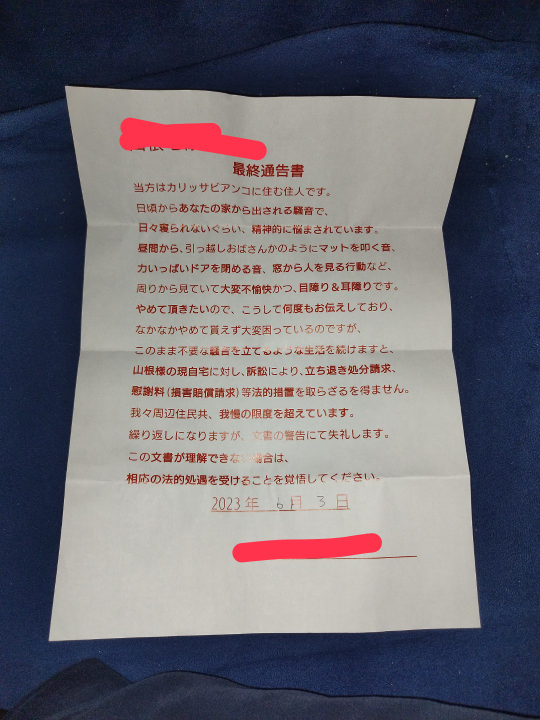 最終通告書
当方はカリッサビアンコに住む住人です。
日頃からあなたの家から出される騒音で、
日々寝られないぐらい、精神的に悩まされています。
昼間から、引っ越しおばさんかのようにマットを叩く音、
力いっぱいドアを閉める音、窓から人を見る行動など、
周りから見ていて大変不愉快かつ、目障り&耳障りです。
やめて頂きたいので、こうして何度もお伝えしており、
なかなかやめて貰えず大変困っているのですが、
このまま不要な騒音を立てるような生活を続けますと、
山根様の現自宅に対し、訴訟により、立ち退き処分請求、
慰謝料(損害賠償請求)等法的措置を取らざるを得ません。
我々周辺住民共、我慢の限度を超えています。
繰り返しになりますが、文書の警告にて失礼します。
この文書が理解できない場合は、
相応の法的処遇を受けることを覚悟してください。
2023年 6月 3日